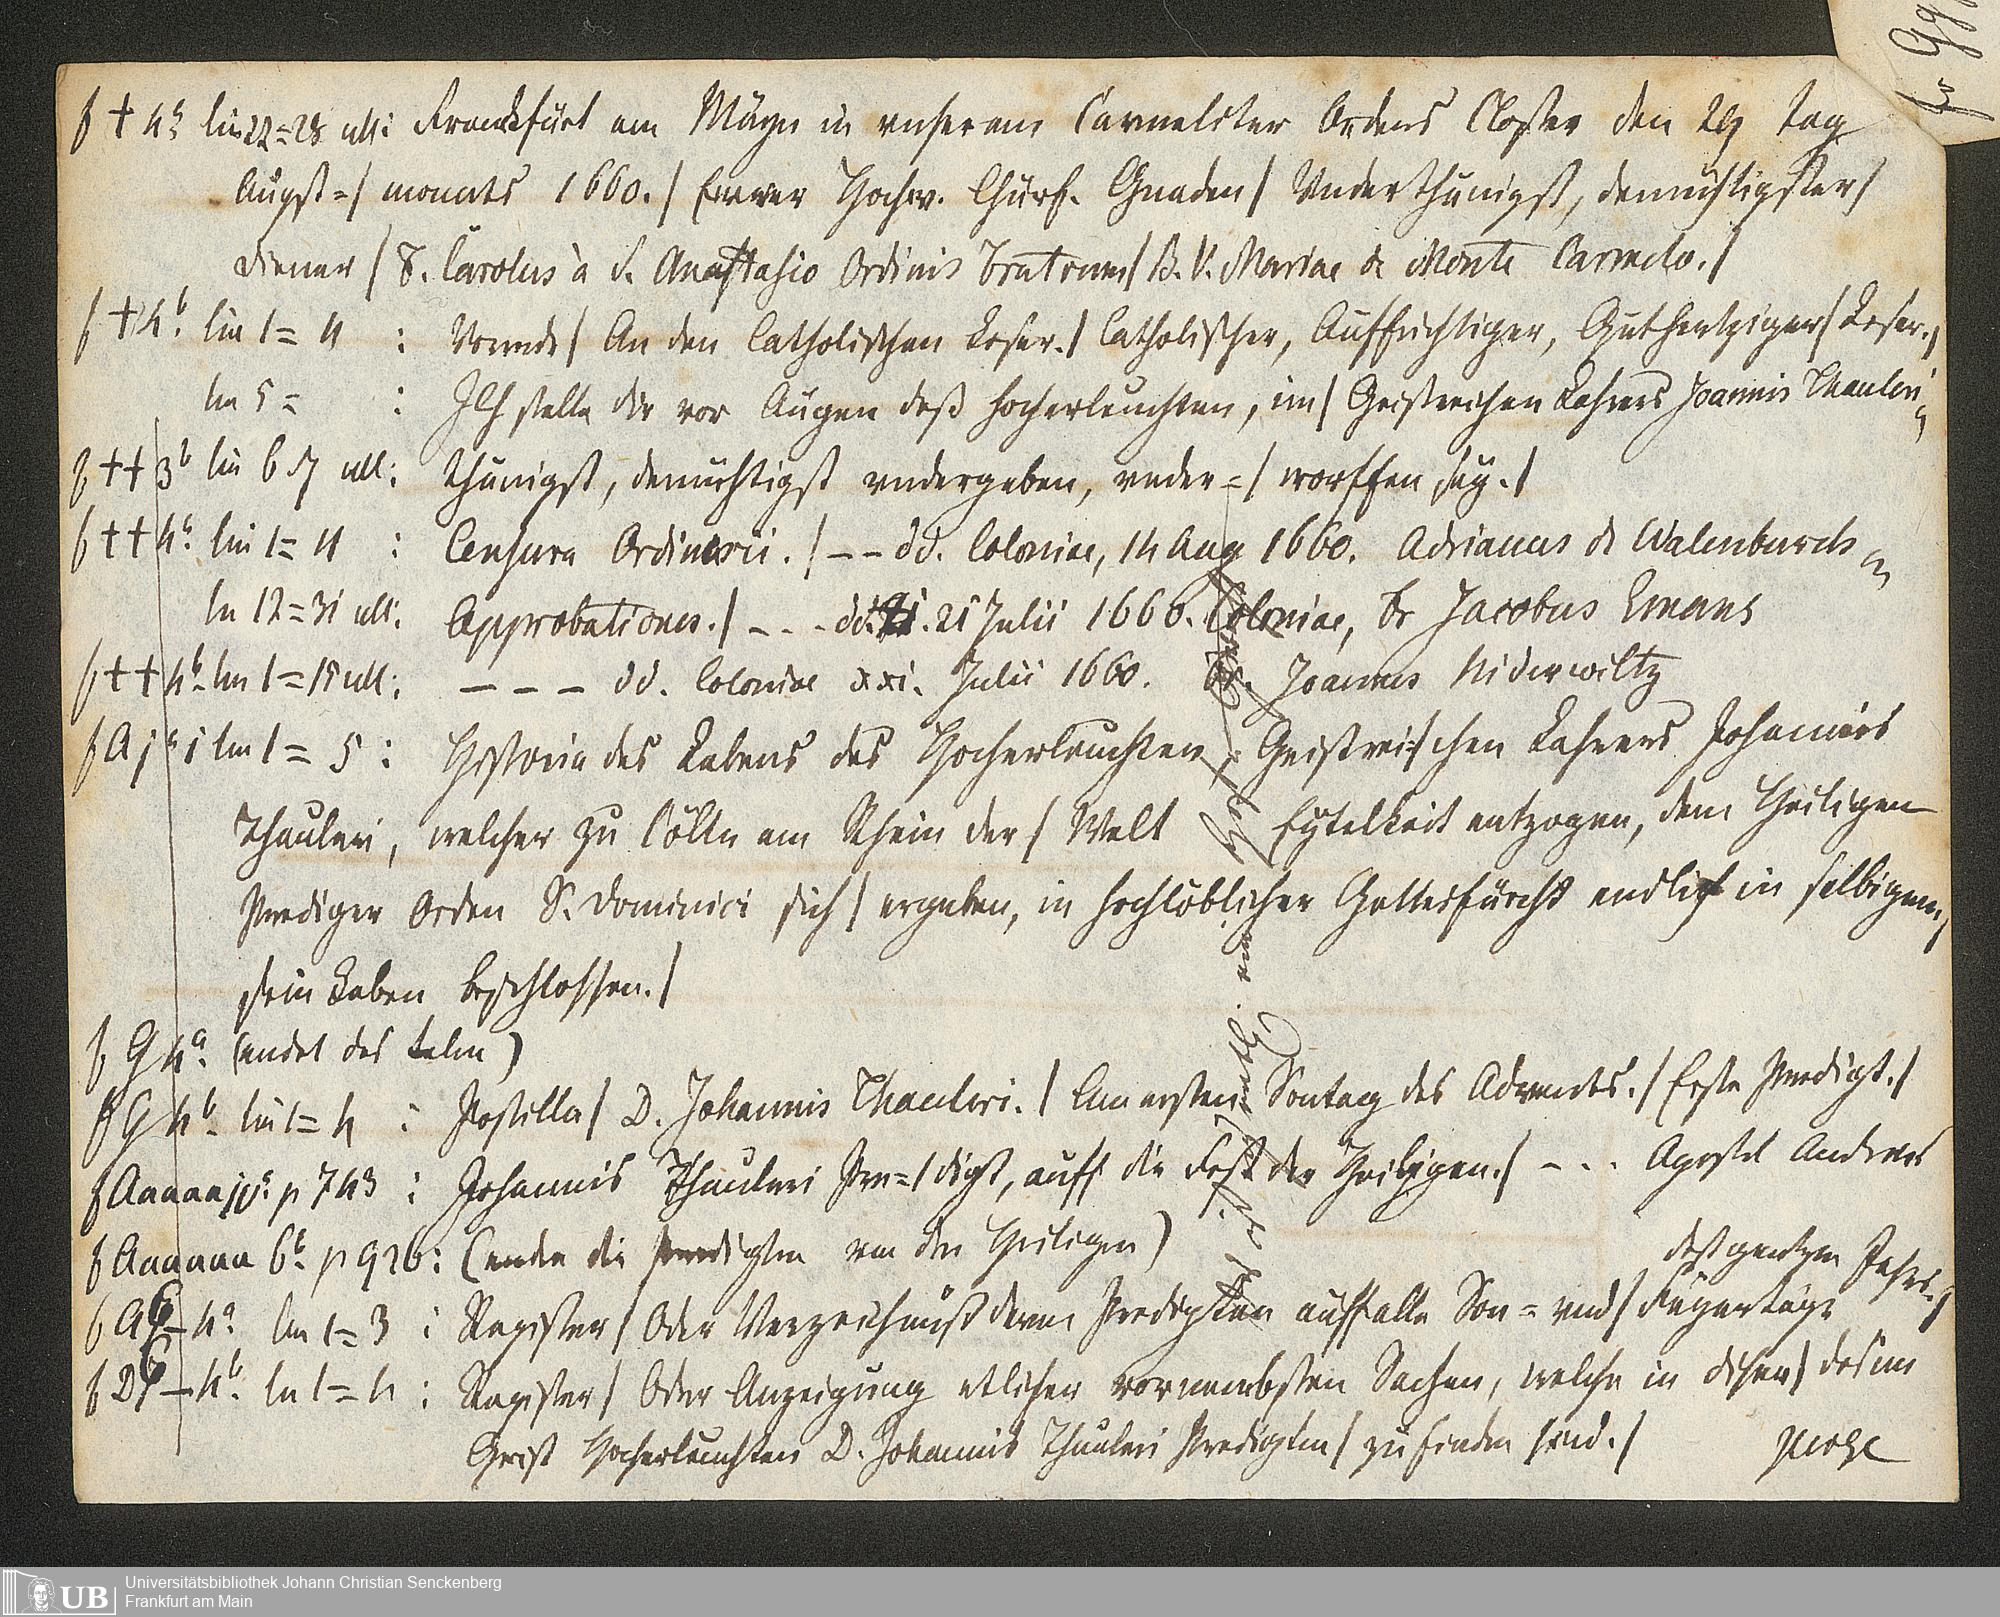 f † 4ª lin 22=28 ult: Franckfürt am Mäyn in vnserem Carmeliter Ordens Closter den 29 tag
Augst=/ monats 1660./ Ewrer Hochw. Chürf. Gnaden/ Vnderthänigst, demüthigster/
diener / F. Carolus à S. Anastasio Ordinis Fratrum/ B. V. Mariae de Monte Carmelo./
f † 4ᵇ. lin 1= 4 : Vorrede/ An den Catholischen Leser./ Catholischer, Auffrichtiger, Guthertziger/ Leser./
lin 5 = : JCH stelle dir vor Augen deß hocherleuchten, im/ Geistreichen Lehrers Joannis Thauleri
f †† 3ᵇ lin 6 ult: thänigst, demüthigst vndergeben, vnder=/ worffen sey./
f †† 4ª lin 1= 4 : Censura Ordinarii. /-- dd. Coloniae, 14 Aug 1660. Adrianus de Walenburch
lin 12=31 ult: Approbationes./ --- dd. 21 Julii 1660. Coloniae, Fr Jacobus Emans
f †† 4ᵇ lin 1=15 ult: --- dd. Coloniae xxi. Julii 1660. Fr. Joannes Niderwiltz
f A jª lin 1= 5 : Historia des Lebens des Hocherleuchten, Geistreichen Lehrers Johannis
Thauleri, welcher zu Cölln am Rhein der/ Welt Eytelkeit entzogen, dem Heiligen
Prediger Orden S. Dominici sich/ ergeben, in hochlöblicher Gottesfürcht endlich in selbigem/
sein Leben beschlossen./
f G 4ª. (endet das Leben)
f G 4ᵇ. lin 1= 4 : Postilla/ D. Johannis Thauleri. / Am ersten Sontag des Advents./ Erste Predigt./
f Aaaaa jvª p 743 : Johannis Thauleri Pre=/digt, auff die Fest der Heiligen./ - . . Apostel Andreas
f Aaaaaa 6ᵇ. p 926: (enden die predigten von den Heiligen)
deß gantzen Jahrs./
4ª lin 1=3 : Register/ Oder Verzeichnuß deren Predigten auff alle Son= vnd/ Feyertäge
4ᵇ. lin 1=4 : Register/ Oder Anzeigung etlicher vornembsten Sachen, welche in diesen/ des im
Geist Hocherleuchten D. Johannis Thauleri Predigten/ zu finden sind./
Universitätsbibliothek Johann Christian Senckenberg
UB
Frankfurt am Main